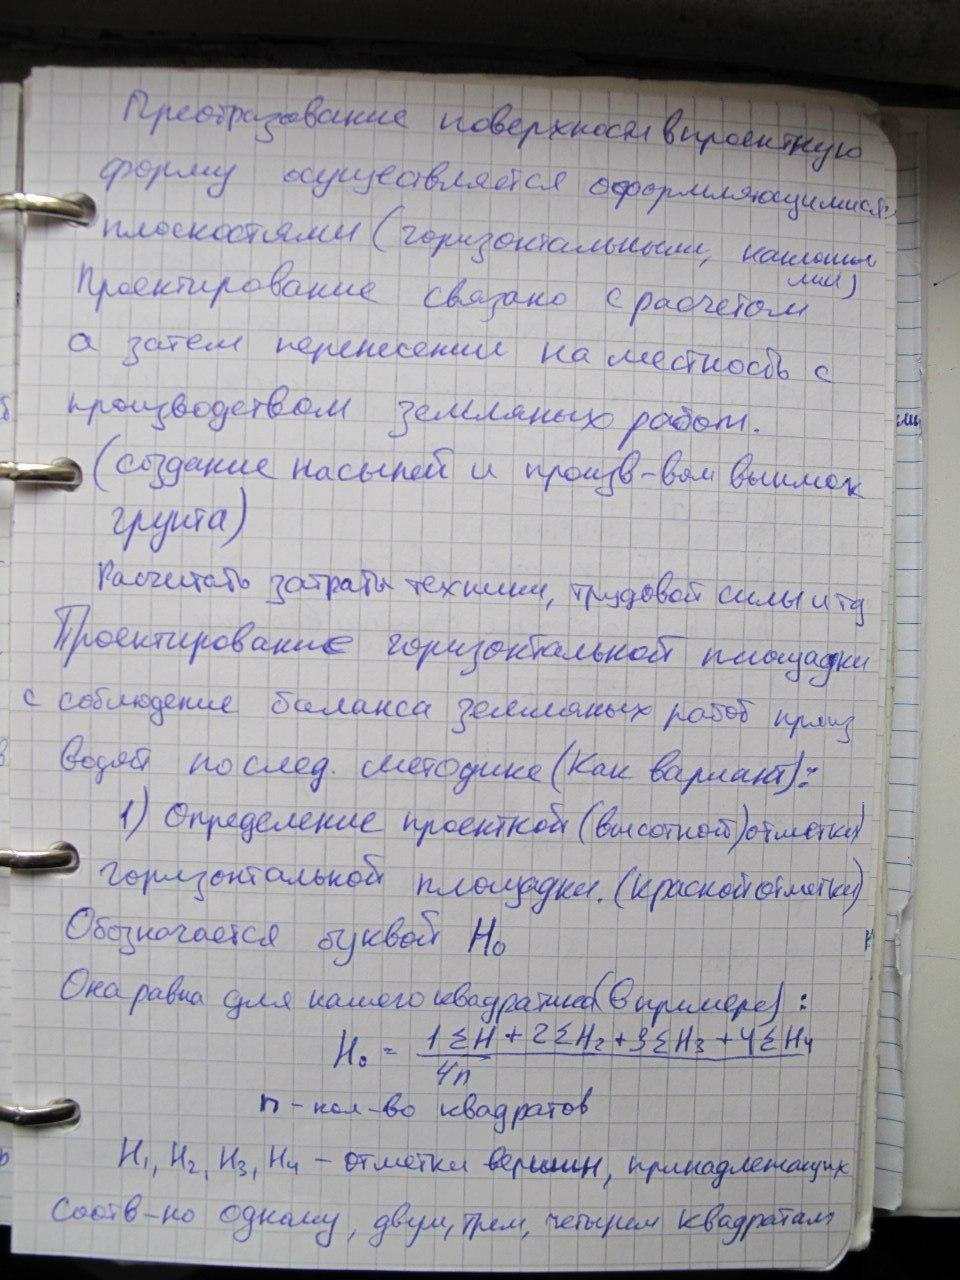 Преобразование поверхности в проектную
форму осуществляется оформляющимися
плоскостями (горизонтальными, наклонны
ми)
Проектирование связано с расчетом
а затем перенесении на местность с
производством земляных работ.
(создание насыпей и произв-вом выимок
грунта)
Расчитать затраты техники, трудовой силы и тд
Проектирование горизонтальной площадки
с соблюдение баланса земляных работ произ
водят по след. методике (Как вариант):
1) Определение проектной (высотной) отметки
горизонтальной площадки. (красной отметки)
Обозначается буквой H₀
Она равна для нашего квадратика (в примере):
H₀ = 1ΣH + 2ΣH₂ + 3ΣH₃ + 4ΣH₄
4n
n - кол-во квадратов
H₁, H₂, H₃, H₄ - отметки вершин, принадлежащих
Соотв-но одному, двум, трем, четырем квадратам